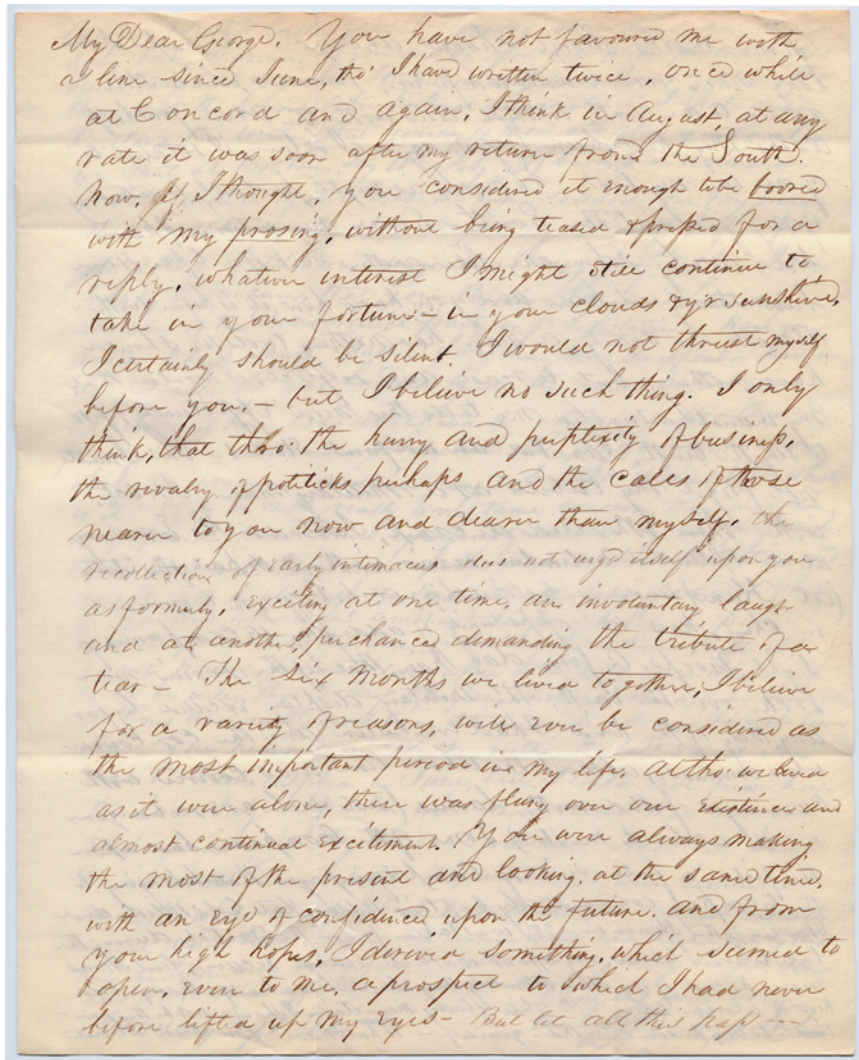 My Dear George. You have not favoured me with
a line since June, tho' I have written twice, once while
at Concord and again, I think in August, at any
rate it was soon after my return from the South.
now, if I thought, you considered it enough to be boored
with my prosing, without being teased & pressed for a
reply, whatever interest I might still continue to
take in your fortunes – in your clouds & y'r sunshine,
I certainly should be silent. I would not thrust myself
before you, – but I believe no such thing. I only
think, that thro' the hurry and perplexity of business,
the rivalry of politicks perhaps and the calls of those
nearer to you now and dearer than myself, the
recollections of early intimacies does not urge itself upon you
as formerly, exciting at one time, an involuntary laugh
and at another, perchance demanding the tribute of a
tear – The six months we lived together, I believe
for a variety of reasons, will ever be considered as
the most important period in my life, altho' we lived
as it were alone, there was flung over our existence and
almost continual excitement. You were always making
the most of the present and looking, at the same time,
with an eye of confidence upon the future. and from
your high hopes, I derived something, which seemed to
open, even to me, a prospect to which I had never
before lifted up my eyes – But let all this pass –